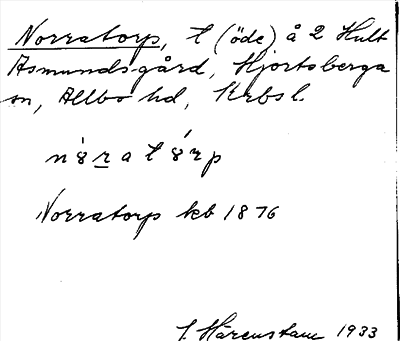 Norratorp, t (öde) å 2 Hult
Asmundsgård, Hjortsberga
sn, Allbo hd, Krbs l.
nóratórp
Norratorp kb 1876
J. Hårenstam 1933